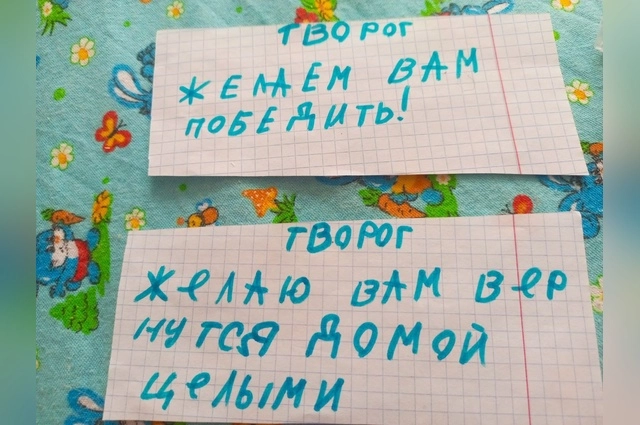 ТВОРОГ
ЖЕЛАЕМ ВАМ
ПОБЕДИТЬ!
ТВОРОГ
ЖеЛАЮ ВАМ Веρ
НУТСЯ ДОМОЙ
ЦеЛЫМИ